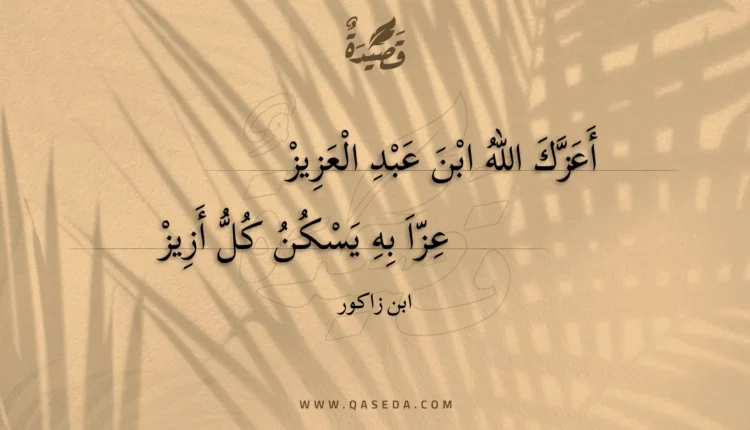 قَصِيْدَةٌ
أَعَزَّكَ اللهُ ابْنَ عَبْدِ الْعَزِيزْ
عِزّاَ بِهِ يَسْكُنُ كُلُّ أَزِيزْ
ابن زاكور
WWW.QASEDA.COM